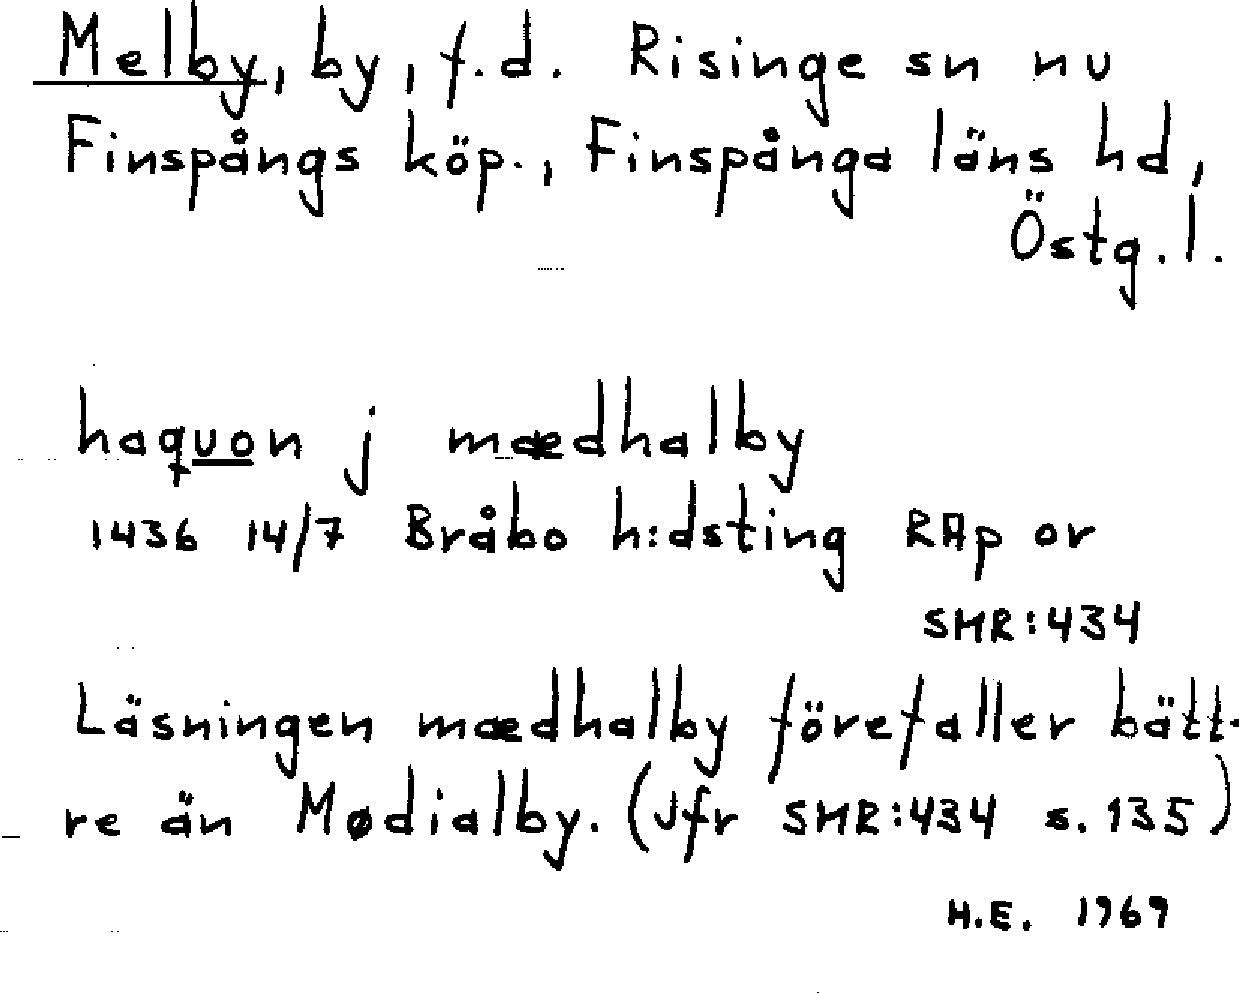 Melby, by, f.d. Risinge sn nu
Finspångs köp., Finspånga läns hd,
Östg.l.
haquon j mædhalby
1436 14/7 Bråbo h:dsting RAp or
SMR:434
Läsningen mædhalby förefaller bätt-
re än Mødialby. (Jfr SMR:434 s. 135)
H.E. 1969